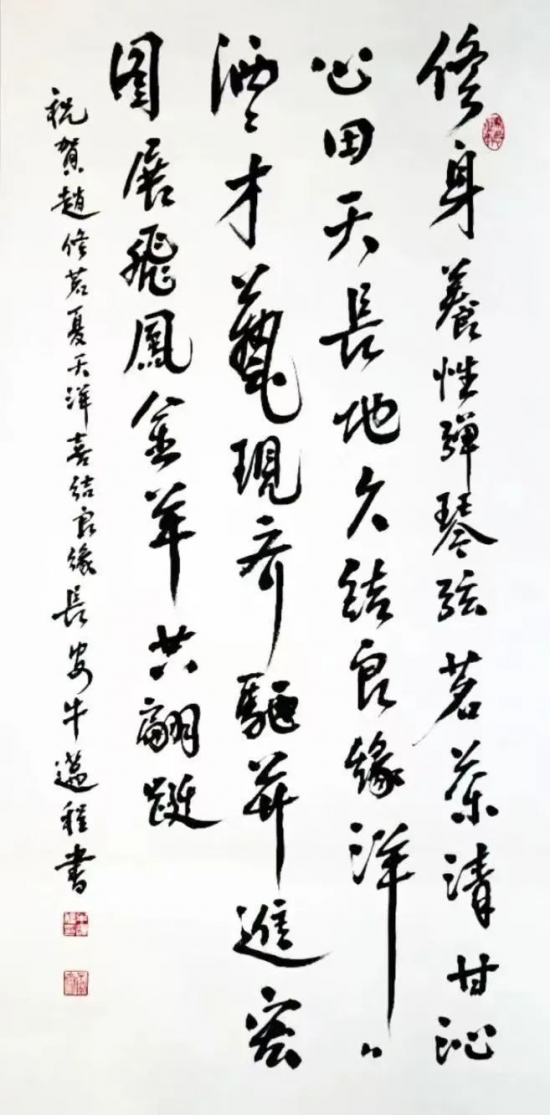 修身養性彈琴弦茗茶清甘沁
心田天長地久結良緣洋〻
洒〻才藝現齊驅并進宏
圖展飛鳳金羊共翩跹
祝賀趙修茗夏天洋喜结良緣長安牛邁程書